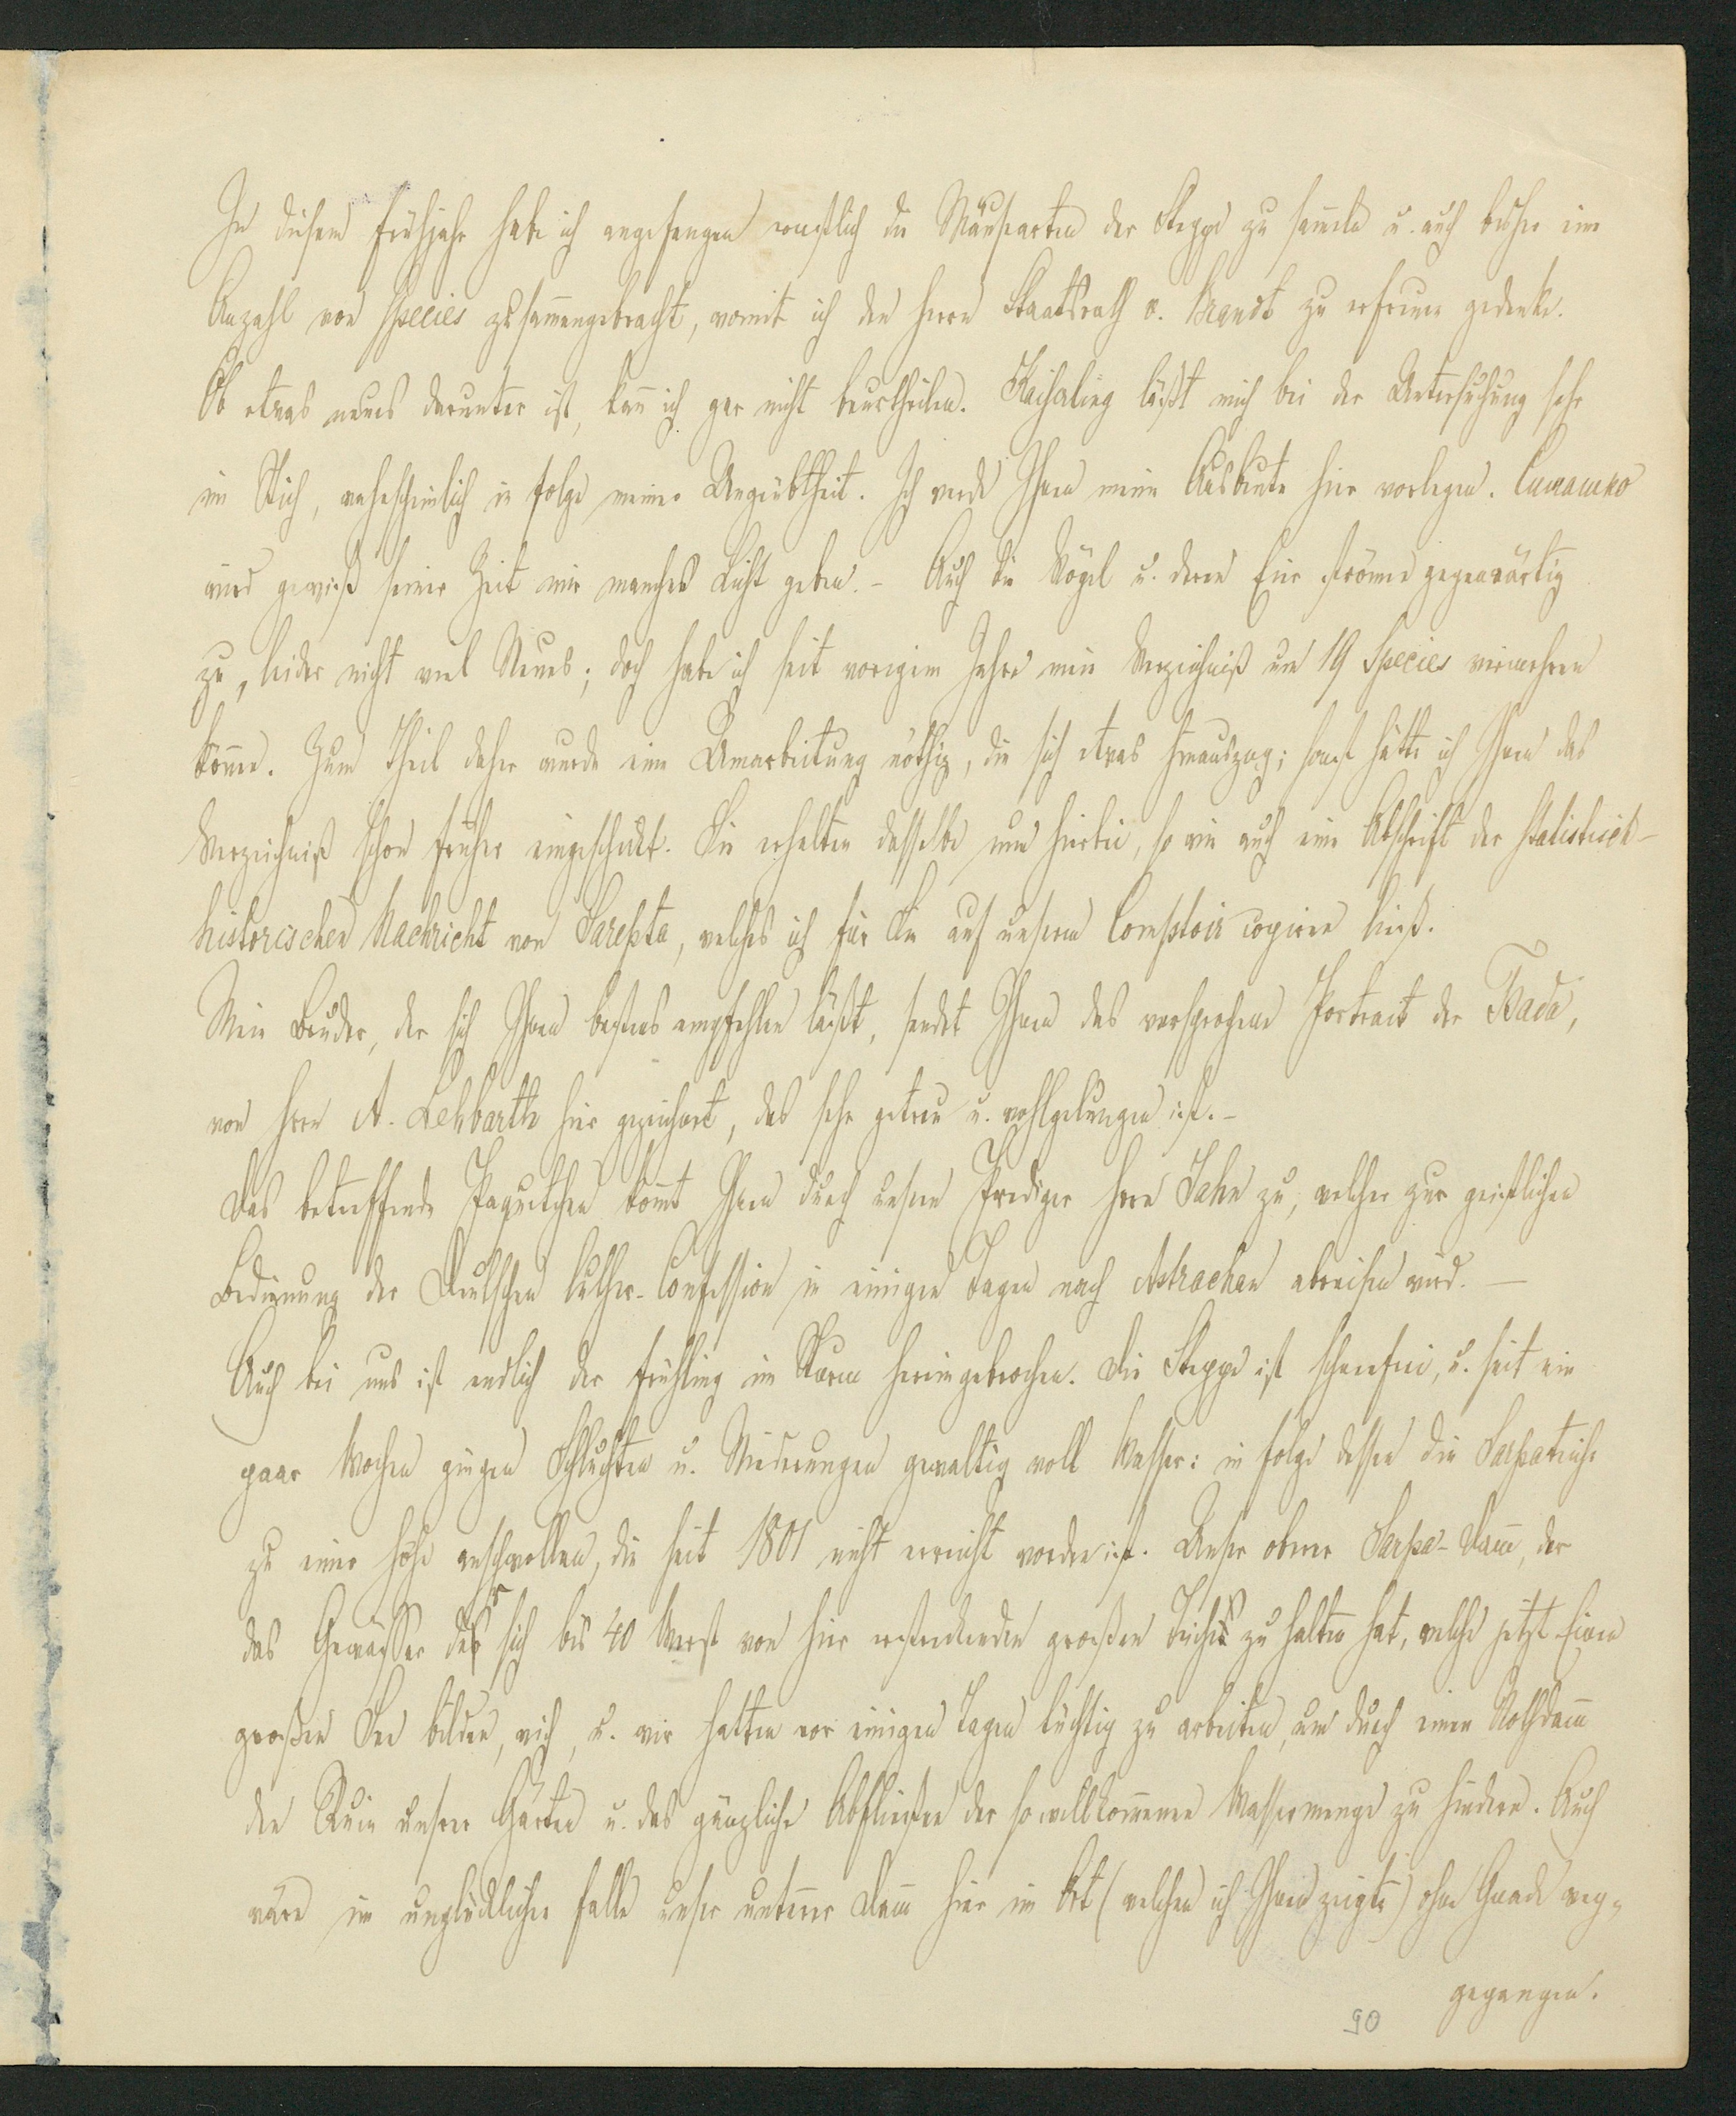 In diesem Frühjahr habe ich angefangen ernstlich die Mäusearten der Steppe zu sam̄eln u. auch bisher eine
Anzahl von Species zusam̄engebracht, womit ich den Herrn Staatsrath v. Brandt zu erfreuen gedenke.
Ob etwas neues darunter ist, kan̄ ich gar nicht beurtheilen. Kaiserling läßt mich bei der Untersuchung sehr
im Stich, wahrscheinlich in Folge meiner Ungeübtheit. Ich werde Ihnen meine Ausbeute hier vorlegen. Симашко
wird gewiß seiner Zeit mir manches Licht geben. – Auch die Vögel u. deren Eier strömen gegenwärtig
zu, leider nicht viel Neues; doch habe ich seit vorigem Jahre mein Verzeichniß um 19 Species vermehren
kön̄en. Zum Theil daher wurde eine Umarbeitung nöthig, die sich etwas hinauszog; sonst hätte ich Ihnen das
Verzeichniß schon früher eingeschickt. Sie erhalten dasselbe nun hierbei, so wie auch eine Abschrift der statistisch-
historischen Nachricht von Sarepta, welches ich für Sie auf unserm Comptoir copiren ließ.
Mein Bruder, der sich Ihnen bestens empfehlen läßt, sendet Ihnen das versprochene Portrait der Bada,
von Herrn A. Lehbarth hier gezeichnet, das sehr getreu u. wohlgelungen ist. –
Das betreffende Paquetchen kom̄t Ihnen durch unsern Prediger Herrn Jahn zu, welcher zur geistlichen
Bedienung der Deutschen luther. Confession in einigen Tagen nach Astrachan abreisen wird. —
Auch bei uns ist endlich der Frühling im Sturm hereingebrochen. Die Steppe ist schneefrei, u. seit ein
paar Wochen gingen Schluchten u. Niederungen gewaltig voll Wasser: in Folge dessen die Sarpateiche
zu einer Höhe anschwollen, die seit 1801 nicht erreicht worden ist. Unser oberer Sarpa-Dam̄, der
das Gewässer der sich bis 40 Werst von hier erstreckenden großen Teiche zu halten hat, welche jetzt Einen
großen See bilden, wich, u. wir hatten vor einigen Tagen tüchtig zu arbeiten, um durch einen Nothdam̄
den Ruin unserer Gärten u. das gänzliche Abfließen der so willkom̄enen Wassermenge zu hindern. Auch
wäre im unglücklichen Falle unser unterer Dam̄ hier im Ort (welchen ich Ihnen zeigte) ohne Gnade weg-
gegangen.
90